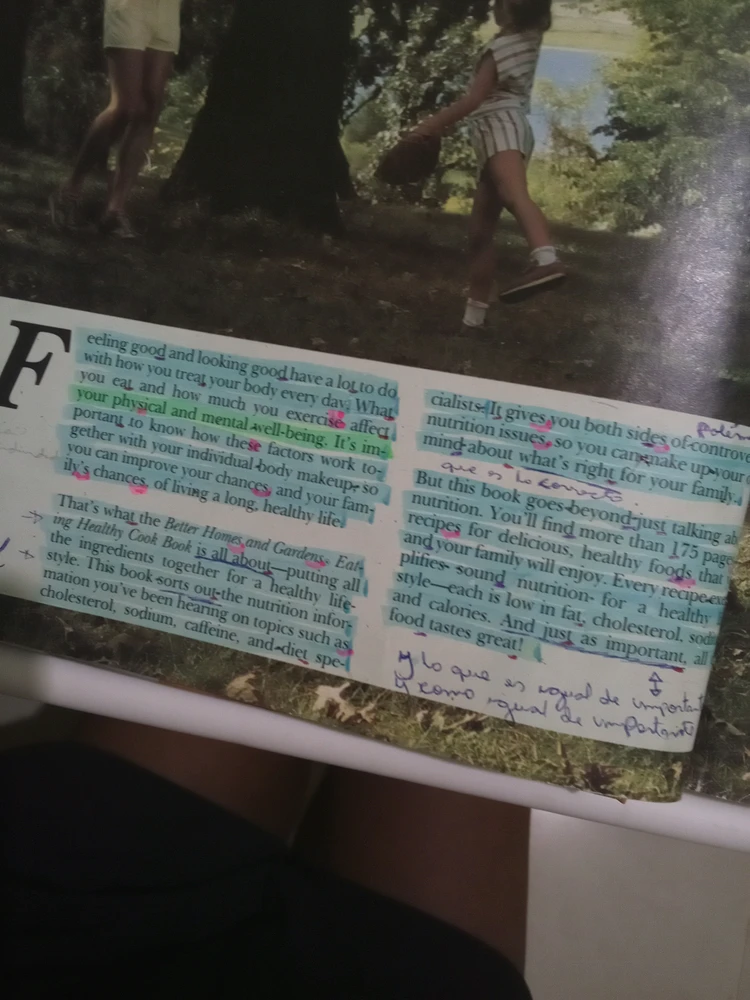 Feeling good and looking good have a lot to do
with how you treat your body every day. What
you eat and how much you exercise affect
your physical and mental well-being. It's im-
portant to know how these factors work to-
gether with your individual body makeup, so
you can improve your chances, and your fam-
ily's chances, of living a long, healthy life.
That's what the Better Homes and Gardens® Eat-
ing Healthy Cook Book is all about—putting all
the ingredients together for a healthy life-
style. This book sorts out the nutrition infor-
mation you've been hearing on topics such as
cholesterol, sodium, caffeine, and diet spe-
cialists. It gives you both sides of controve
nutrition issues, so you can make up your
mind about what's right for your family.
que es lo correcto
But this book goes beyond just talking ab
nutrition. You'll find more than 175 page
recipes for delicious, healthy foods that
and your family will enjoy. Every recipe ex
plifies sound nutrition for a healthy
style—each is low in fat, cholesterol, sodi
and calories. And just as important, all
food tastes great!
y lo que es igual de important
y como igual de importante